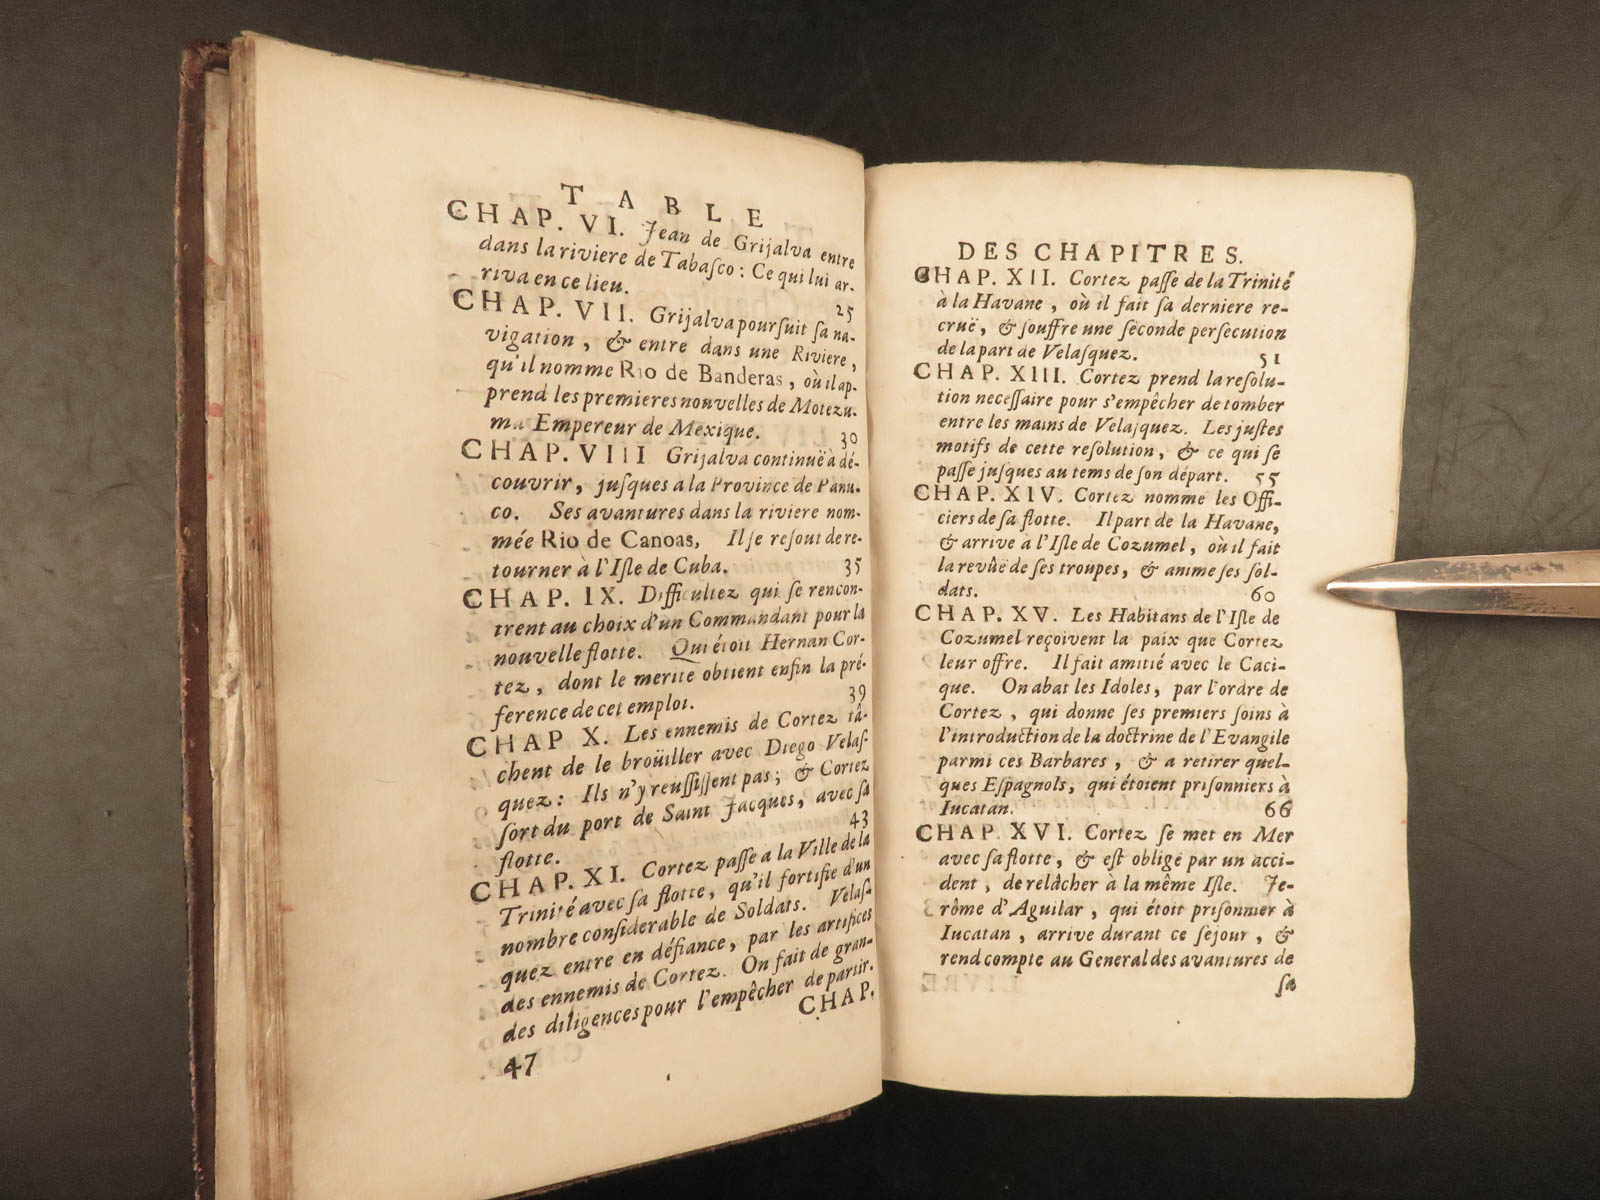 TABLE
CHAP. VI. Jean de Grijalva entre
dans la riviere de Tabaſco : Ce qui lui ar-
riva en ce lieu. 25
CHAP. VII. Grijalva pourſuit ſa na-
vigation, & entre dans une Riviere,
qu'il nomme Rio de Banderas, où il ap-
prend les premieres nouvelles de Motezu-
ma Empereur de Mexique. 30
CHAP. VIII Grijalva continuë à dé-
couvrir, juſques a la Province de Panu-
co. Ses avantures dans la riviere nom-
mée Rio de Canoas, Il ſe reſout de re-
tourner à l'Iſle de Cuba. 35
CHAP. IX. Difficultez qui ſe rencon-
trent au choix d'un Commandant pour la
nouvelle flotte. Qui étoit Hernan Cor-
tez, dont le merite obtient enfin la pré-
ference de cet emploi. 39
CHAP X. Les ennemis de Cortez tâ-
chent de le broüiller avec Diego Velaſ-
quez : Ils n'y reuſſiſſent pas ; & Cortez
ſort du port de Saint Jacques, avec ſa
flotte. 43
CHAP. XI. Cortez paſſe a la Ville de la
Trinité avec ſa flotte, qu'il fortifie d'un
nombre conſiderable de Soldats. Velaſ-
quez entre en défiance, par les artifices
des ennemis de Cortez. On fait de gran-
des diligences pour l'empêcher de partir.
47 CHAP.
DES CHAPITRES.
CHAP. XII. Cortez paſſe de la Trinité
à la Havane, où il fait ſa derniere re-
cruë, & ſouffre une ſeconde perſecution
de la part de Velaſquez. 51
CHAP. XIII. Cortez prend la reſolu-
tion neceſſaire pour s'empêcher de tomber
entre les mains de Velaſquez. Les juſtes
motifs de cette reſolution, & ce qui ſe
paſſe juſques au tems de ſon départ. 55
CHAP. XIV. Cortez nomme les Offi-
ciers de ſa flotte. Il part de la Havane,
& arrive à l'Iſle de Cozumel, où il fait
la revûë de ſes troupes, & anime ſes ſol-
dats. 60
CHAP. XV. Les Habitans de l'Iſle de
Cozumel reçoivent la paix que Cortez
leur offre. Il fait amitié avec le Caci-
que. On abat les Idoles, par l'ordre de
Cortez, qui donne ſes premiers ſoins à
l'introduction de la doctrine de l'Evangile
parmi ces Barbares, & a retirer quel-
ques Eſpagnols, qui étoient priſonniers à
Iucatan. 66
CHAP. XVI. Cortez ſe met en Mer
avec ſa flotte, & eſt obligé par un acci-
dent, de relâcher à la même Iſle. Je-
rôme d'Aguilar, qui étoit priſonnier à
Iucatan, arrive durant ce ſejour, &
rend compte au General des avantures de
ſa